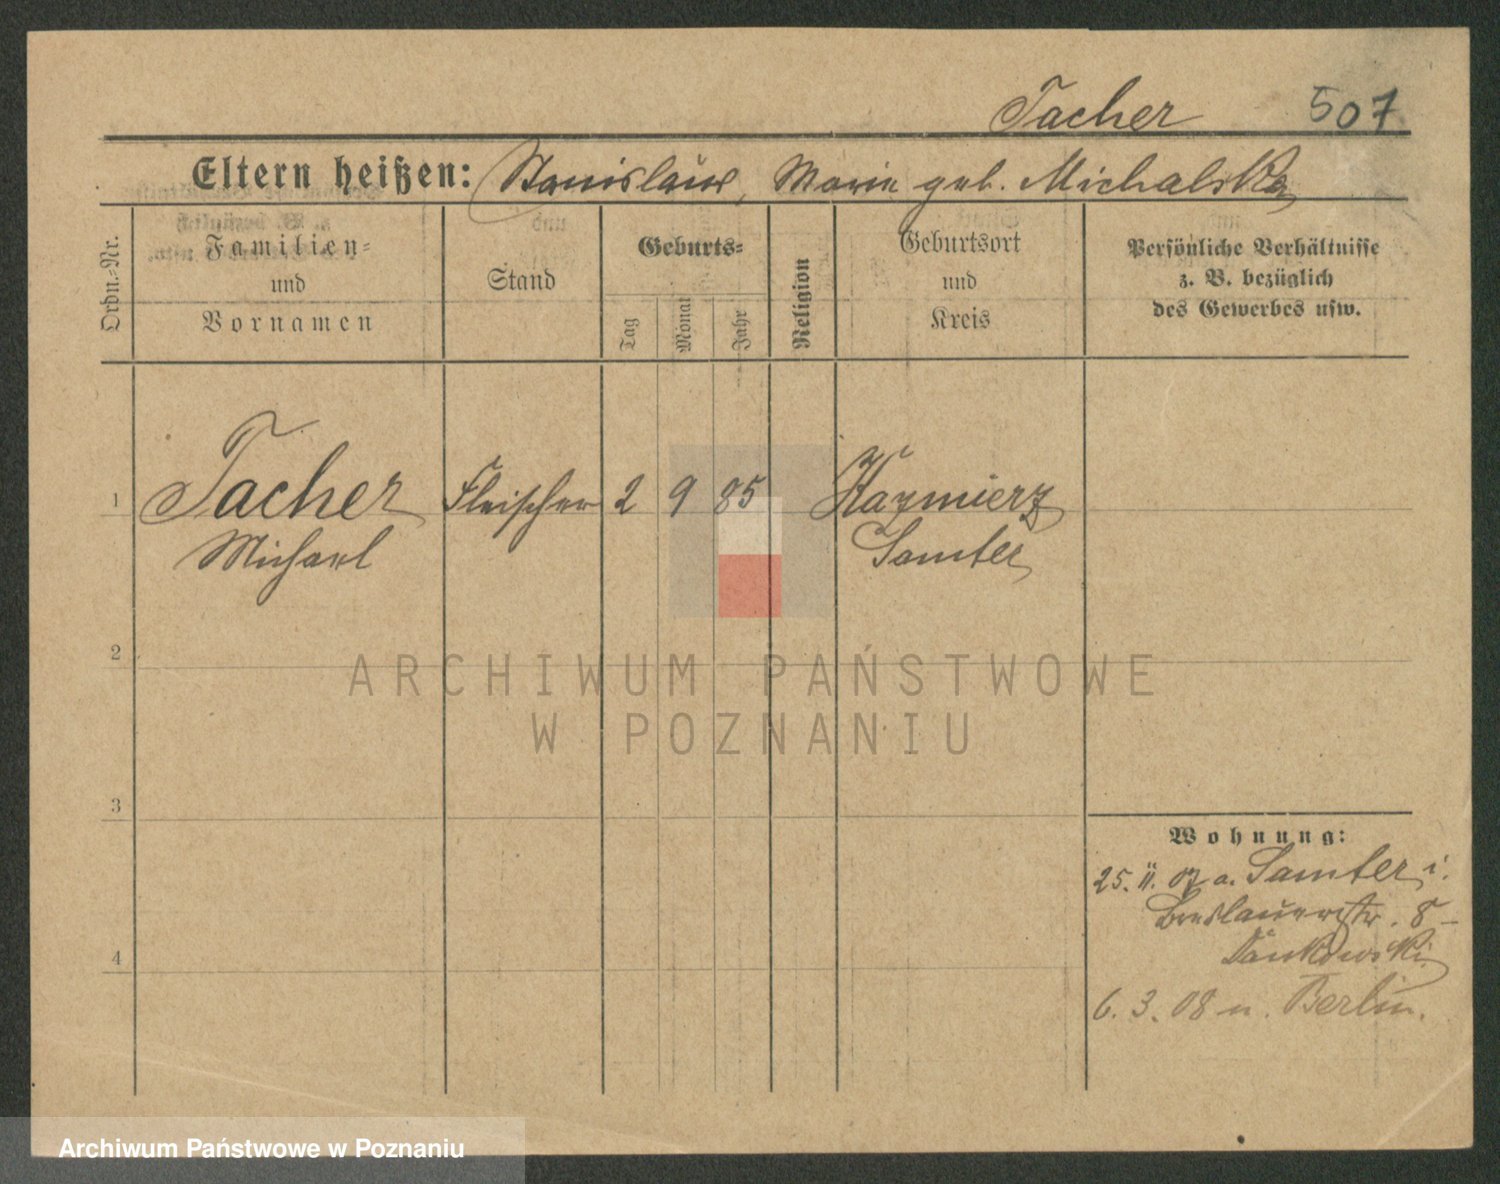 Tacher 507
Eltern heißen: Stanislaus, Marie geb. Michalska
Ordn.-Nr.
Familien-
und
Vornamen
Stand
Geburts-
Tag
Monat
Jahr
Religion
Geburtsort
und
Kreis
Persönliche Verhältnisse
z. B. bezüglich
des Gewerbes usw.
1 Tacher Fleischer 2 9 85 Kazmierz
Michael Samter
2
3
4
Wohnung:
25. 11. 07 a. Samter i.
Breslauerstr. 8 -
Dankowski
6. 3. 08 n. Berlin.
ARCHIWUM PAŃSTWOWE
W POZNANIU
Archiwum Państwowe w Poznaniu